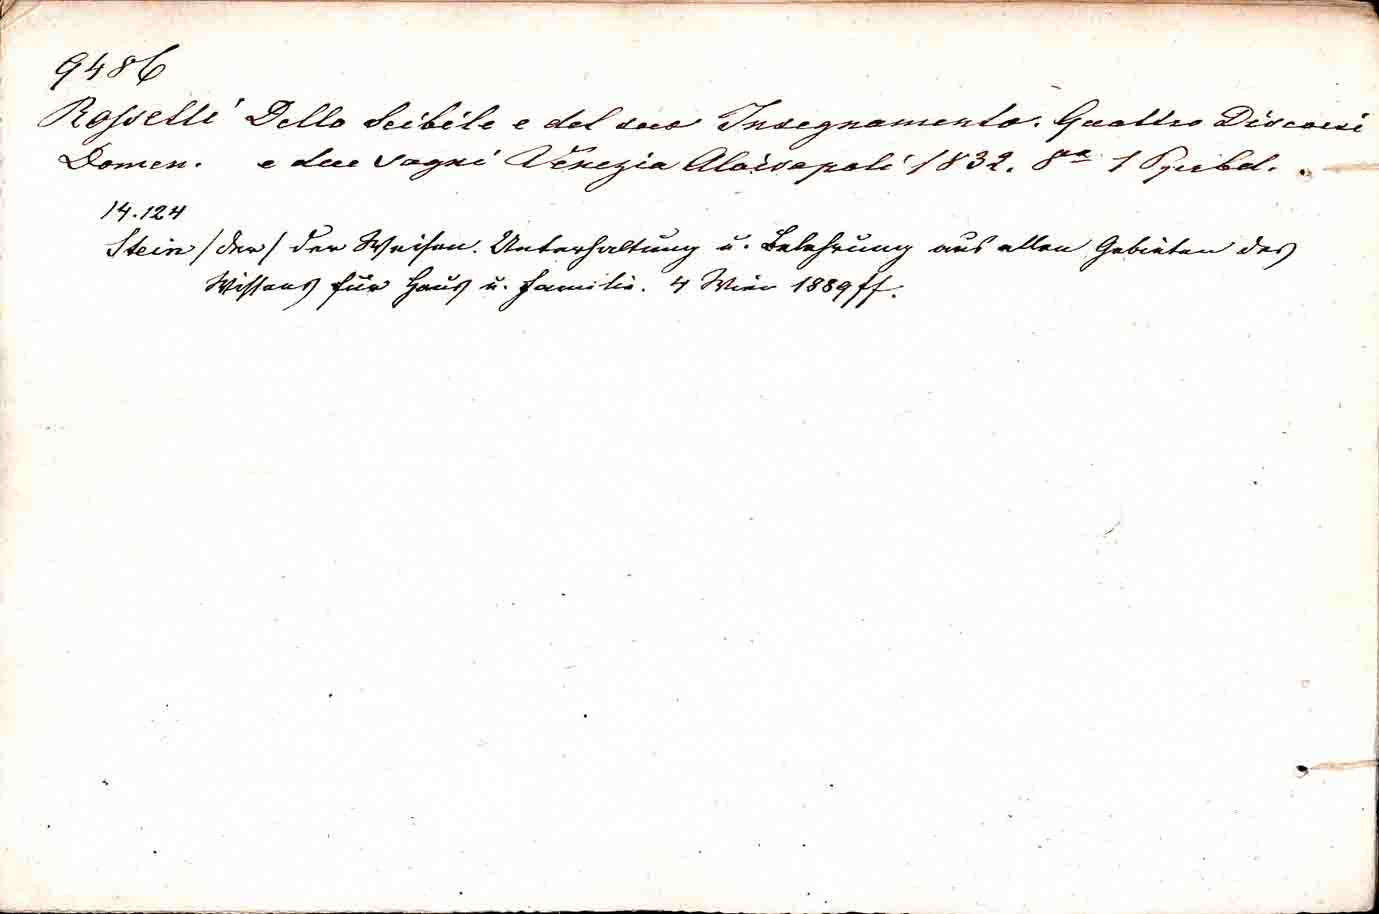 9486
Rossetti Dello Scibile e del suo Insegnamento. Quattro Discorsi
Domen. e due sogni Venezia Alvisopoli 1832. 8vo 1 Ppbd.
14.124
Stein /der/ der Weisen. Unterhaltung u. Belehrung aus allen Gebieten des
Wissens für Haus u. Familie. 4 Wien 1889 ff.